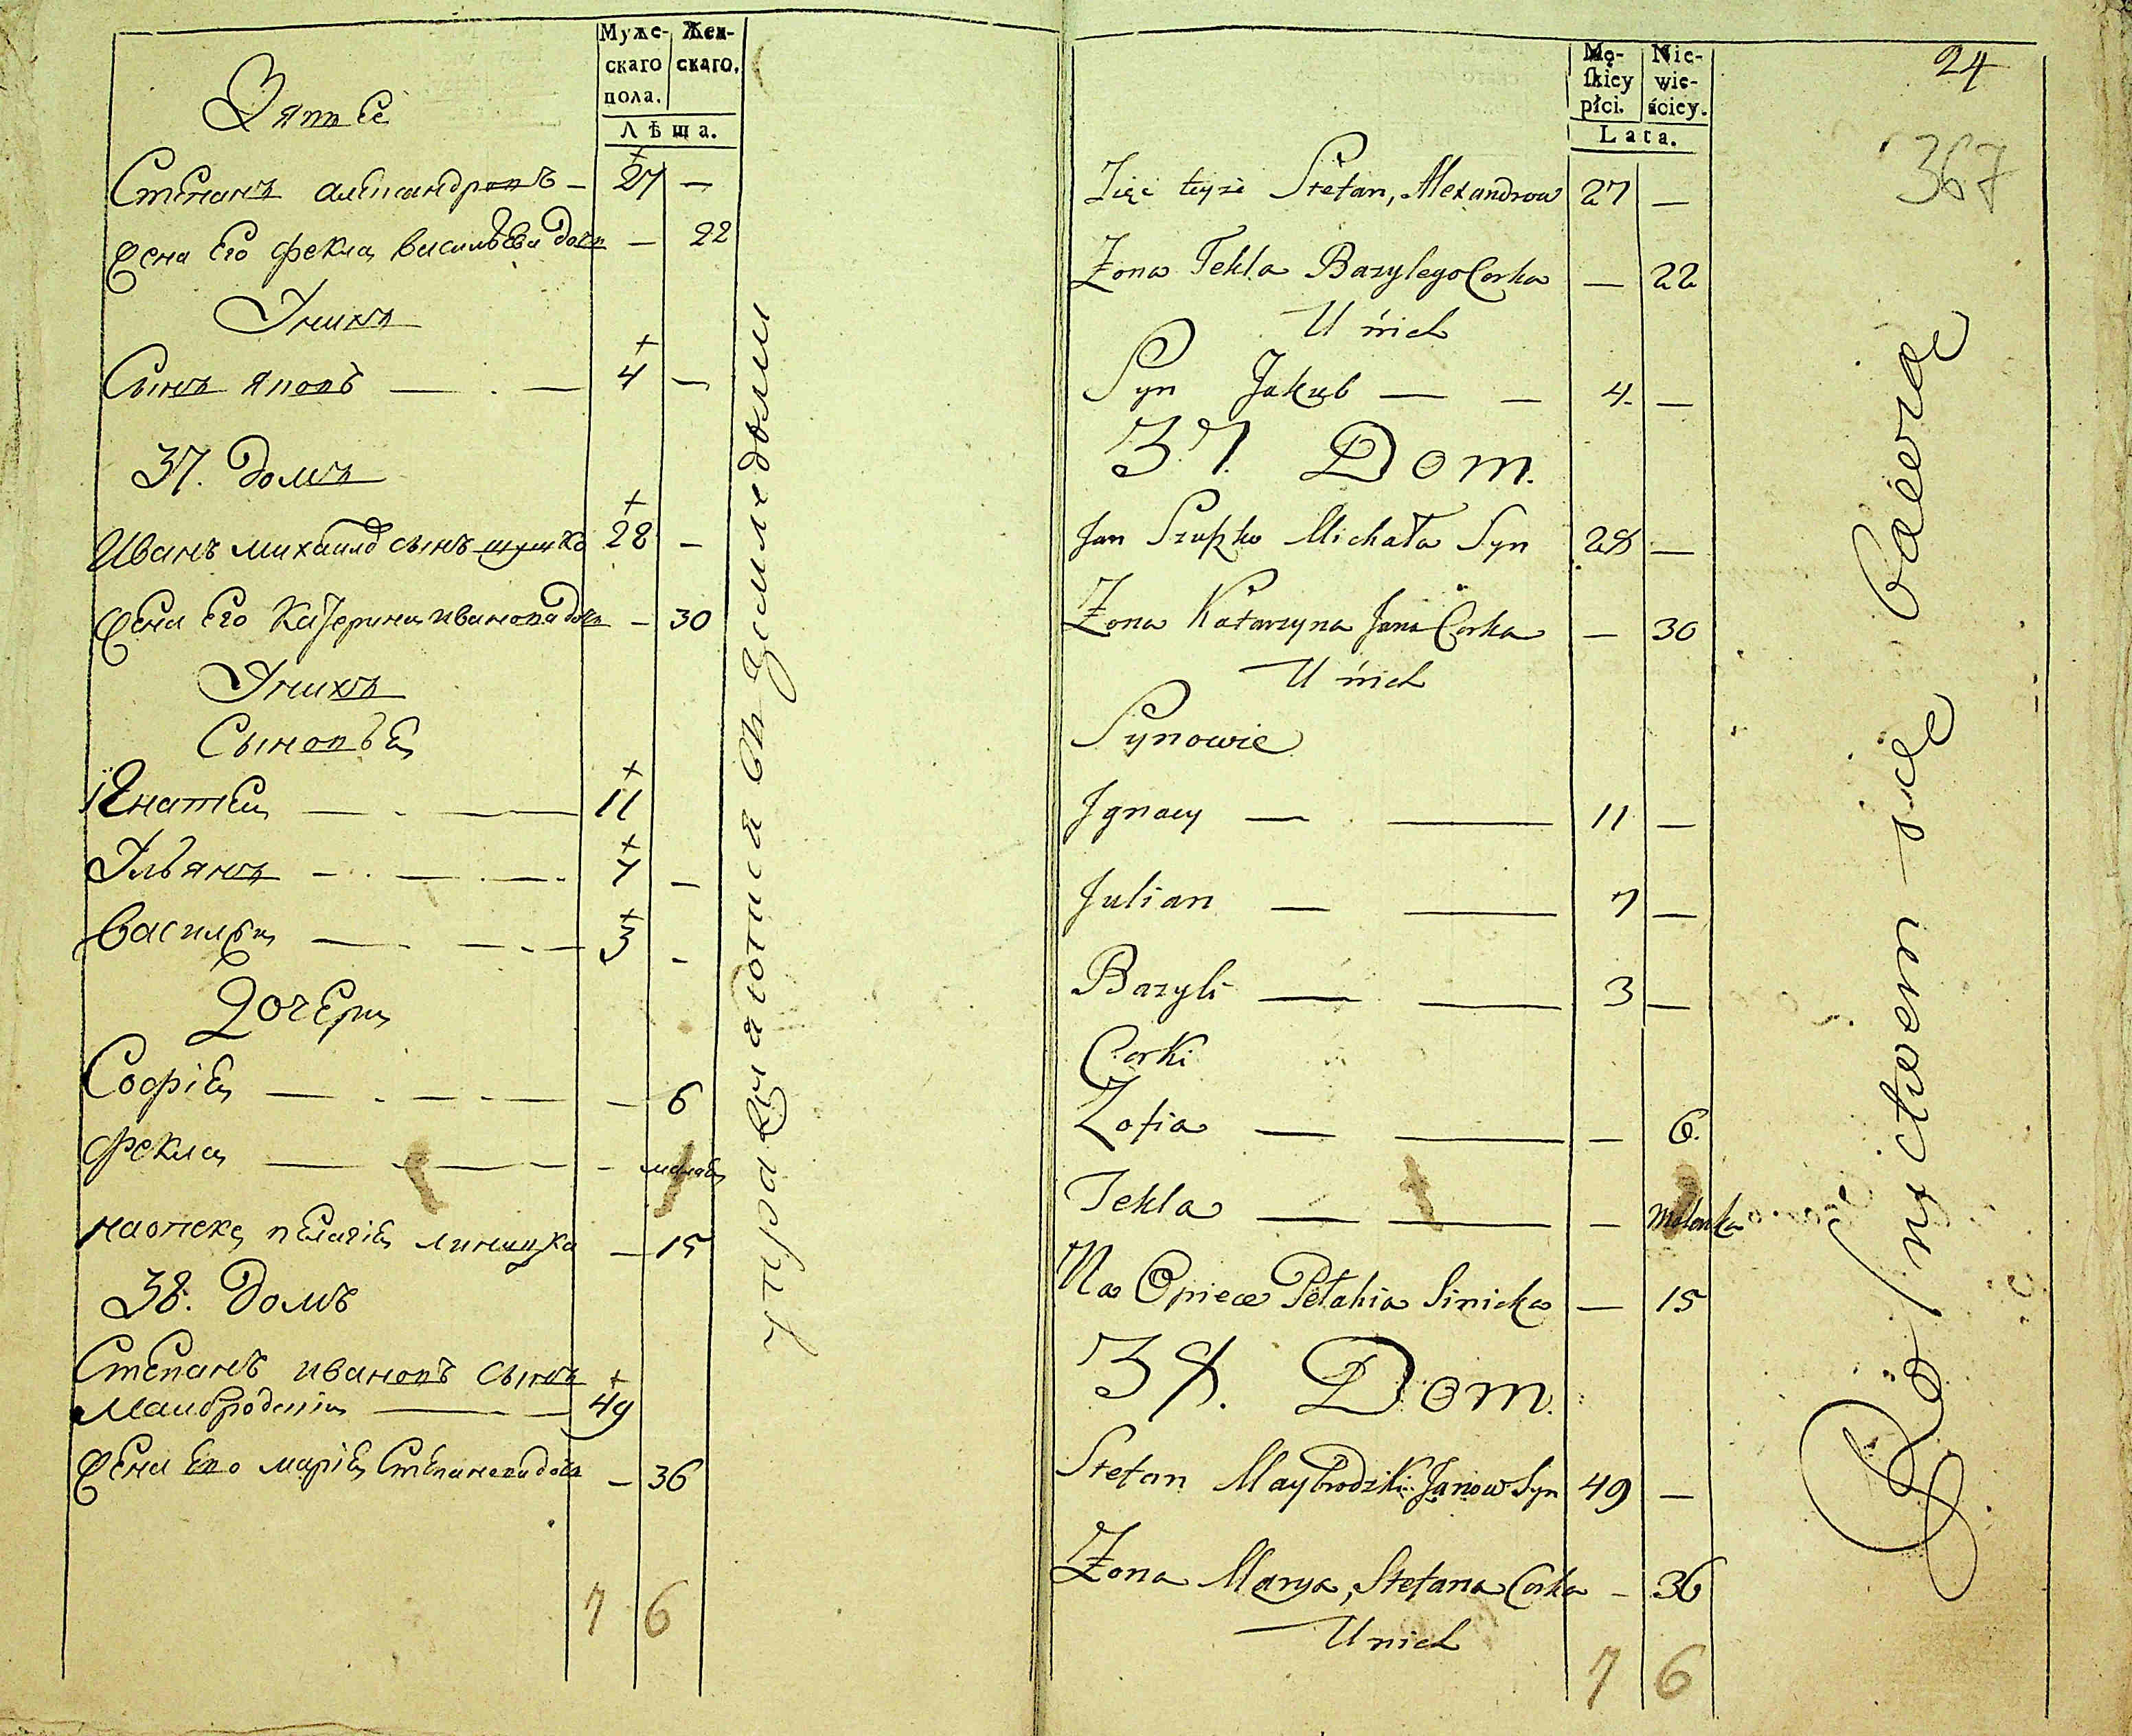 Муже- Жен-
скаго скаго.
пола.
Лѣта.
Зять Ее
Степанъ Александровъ — 27 —
Жена Его Фекла Васильева дочь — 22
У нихъ
Сынъ Яковъ — 4 —
37. Домъ
Иванъ Михаила сынъ Шушко 28 —
Жена Его Катерина Иванова дочь — 30
У нихъ
Сыновья
Игнатей — 11
Ульянъ — 7 —
Василей — 3 —
Дочери
Софiя — 6
Фекла —
на опеке Пелагiя — 15
38. Домъ
Степанъ Ивановъ сынъ
— 49
Жена Его Марiя Степанова дочь — 36
7 6
управляются земледелiем
Mę- Nie-
ſkiey wie-
płci. ściey.
Lata.
24
367
Zięć teyże Stefan, Alexandrow 27 —
Żona Tekla Bazylego Corka — 22
U nich
Syn Jakub — — 4 —
37. Dom.
Jan Szuszko Michała Syn 28 —
Żona Katarzyna Jana Corka — 30
U nich
Synowie
Jgnacy — — 11 —
Julian — — 7 —
Bazyli — — 3 —
Corki
Zofia — — — 6.
Tekla — — — Malenka
Na Opiece Pelahia Sinicka — 15
38. Dom.
Stefan Maybrodzki Janow Syn 49 —
Żona Marya, Stefana Corka — 36
U nich
7 6
Rolnictwem się bawią